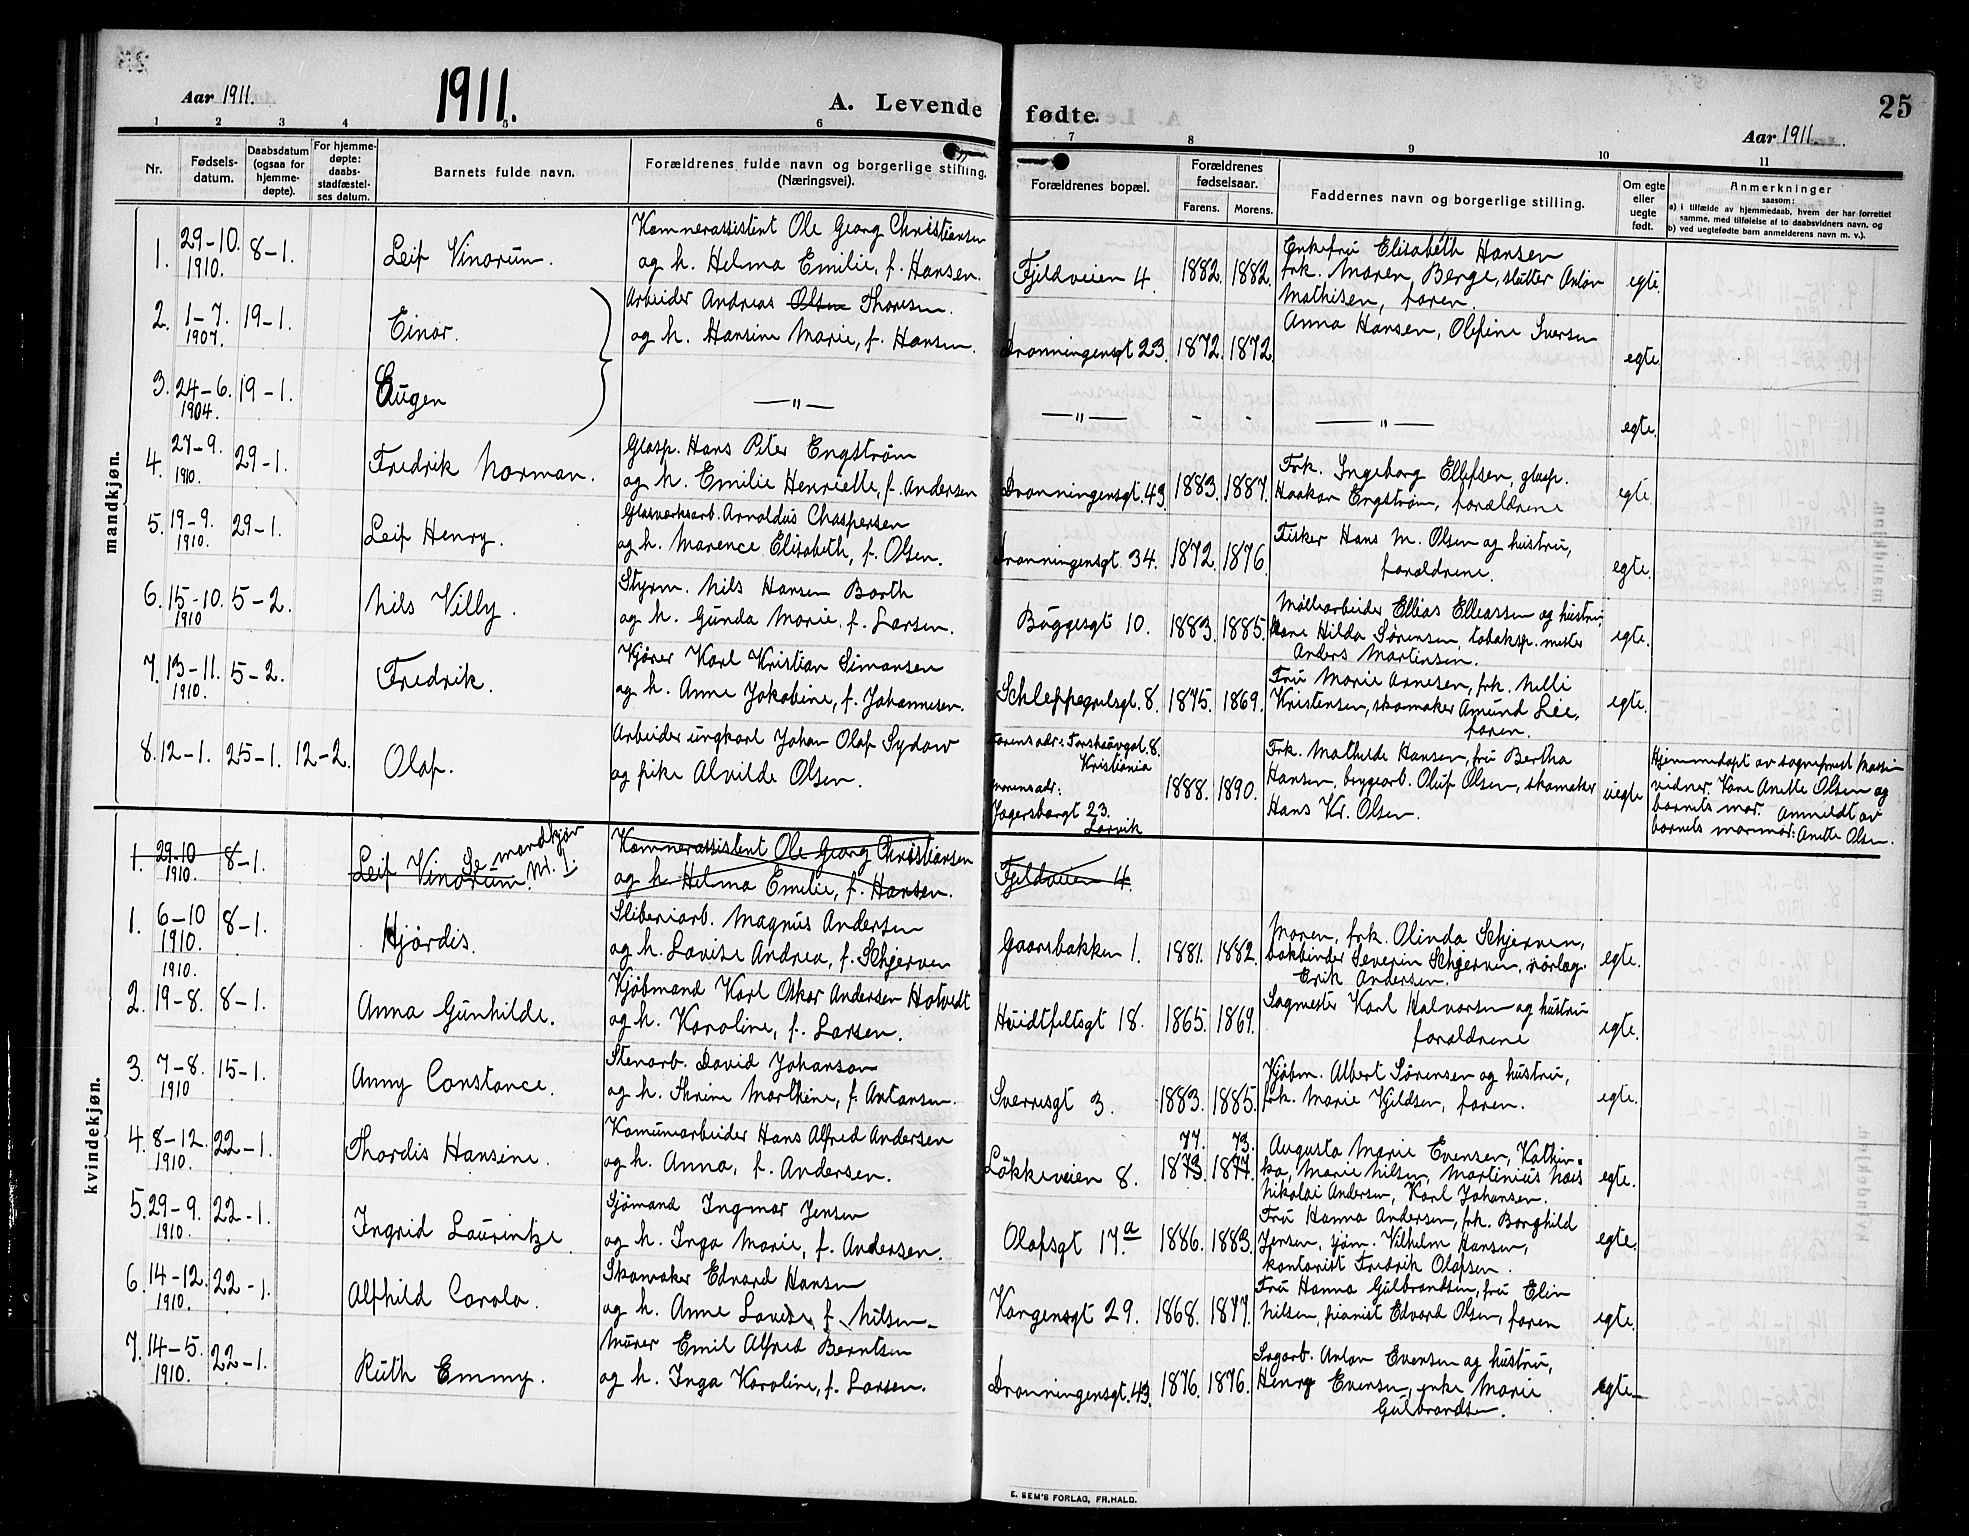 Aar 1911.
1911.
A. Levende fødte.
25
Aar 1911.
1 2 3 4 5 6 7 8 9 10 11
Nr.
Fødsels-
datum.
Daabsdatum
(ogsaa for
hjemme-
døpte).
For hjemme-
døpte:
daabs-
stadfæstel-
ses datum.
Barnets fulde navn.
Forældrenes fulde navn og borgerlige stilling.
(Næringsvei).
Forældrenes bopæl.
Forældrenes
fødselsaar.
Farens. Morens.
Faddernes navn og borgerlige stilling.
Om egte
eller
uegte
født.
Anmerkninger
saasom:
a) i tilfælde av hjemmedaab, hvem der har forrettet
samme, med tilføielse af to daabsvidners navn, og
b) ved uegtefødte barn anmelderens navn m. v.).
mandkjøn.
1. 29-10. 1910. 8-1. Leif Vinorum.
Kæmnerassistent Ole Georg Christiansen
og h. Helma Emilie, f. Hansen.
Fjeldveien 4. 1882. 1882.
Enkefru Elisabeth Hansen
frk. Maren Berge, slutter Anton
Mathisen, faren.
egte.
2. 1-7. 1907. 19-1. Einar.
Arbeider Andreas Olsen Thoresen.
og h. Hansine Marie, f. Hansen.
Dronningensgt 23. 1872. 1872
Anna Hansen, Olefine Iversen
egte.
3. 24-6. 1904. 19-1. Eugen
—"— —"— - - —"— egte.
4. 27-9. 1910. 29-1. Fredrik Norman.
Glasp. Hans Peter Engstrøm
og h. Emilie Henriette, f. Andersen
Dronningensgt. 43. 1883. 1887.
Frk. Ingeborg Ellefsen, glasp.
Haakon Engstrøm, forældrene
egte.
5. 19-9. 1910. 29-1. Leif Henry.
Glasværksarb. Arnoldus Chaspersen
og h. Marence Elisabeth, f. Olsen.
Dronningensgt. 34. 1872. 1876.
Fisker Hans M. Olsen og hustru,
forældrene.
egte.
6. 15-10. 1910 5-2. Nils Villy.
Styrm. Nils Hansen Barth
og h. Gunda Marie, f. Larsen.
Buggesgt 10. 1883. 1885.
Mølleabeider Ellias Elleassen og hustru,
kone Hilda Sørensen, tobaksp. mester
Anders Martinsen.
egte.
7. 13-11. 1910. 5-2. Fredrik.
Kjører Karl Kristian Simonsen
og h. Anne Jakobine, f. Johannesen.
Schleppegrelsgt. 8. 1875. 1869.
Fru Marie Arnesen, frk. Nelli
Kristensen, skomaker Amund Lie,
faren.
egte.
8. 12-1. 25-1. 12-2. Olaf.
Arbeider ungkarl Johan Olaf Sydow
og pike Alvilde Olsen.
Farens adr: Torshaugat. 8.
Kristiania
morens adr:
Jegersborgt 23.
Larvik
1888. 1890.
Frk. Mathilde Hansen, fru Bertha
Hansen, brygearb. Oluf Olsen, skomaker
Hans Kr. Olsen.
uegte
Hjemmedøpt av sogneprest Massi
vidner Kone Anette Olsen og
barnets mor. Anmeldt av
barnets mormor: Anette Olsen.
kvindekjøn.
1. 29-10 1910. 8-1. Leif Vinorum. Se mandkjøn Nr. 1.
Kæmnerassistent Ole Georg Christiansen
og h. Helma Emilie, f. Hansen.
Fjeldveien 4.
1. 6-10 1910. 8-1. Hjørdis.
Sliberiarb. Magnus Andersen
og h. Lovise Andrea, f. Schjerven
Gaarsbakken 1. 1881. 1882.
Moren, frk. Olinda Schjerven,
bokbinder Severin Schjerven, rørlæg.
Erik Andersen.
egte.
2. 1910. 19-8. 8-1. Anna Gunhilde.
Kjøbmand Karl Oskar Andersen Hotvedt
og h. Karoline, f. Larsen.
Huidtfeltsgt 18. 1865. 1869.
Sagmester Karl Halvorsen og hustru
forældrene
egte.
3. 7-8. 1910 15-1. Anny Constance.
Stenarb. David Johanson
og h. Thrine Marthine, f. Antonsen.
Sverresgt 3. 1883. 1885.
Kjøbm. Albert Sørensen og hustru,
frk. Marie Kjeldsen, faren.
egte.
4. 8-12. 1910. 22-1. Thordis Hansine.
Komunearbeider Hans Alfred Andersen
og h. Anna, f. Andersen.
Løkkeveien 8. 77. 1873. 73. 1877.
Augusta Marie Evensen, Kathin-
ka, Marie Nilsen, Martinius Næss
Nikolai Andersen, Karl Johansen.
egte.
5. 29-9. 1910. 22-1. Ingrid Laurintze
Sjømand Ingmar Jensen
og h. Inga Marie, f. Andersen.
Olafsgt 17.a 1886. 1883.
Fru Hanna Andersen, frk. Borghild
Jensen, sjøm. Vilhelm Hansen,
kontorist Fredrik Olafsen.
egte.
6. 14-12. 1910. 22-1. Alfhild Carola.
Skomaker Edvard Hansen
og h. Anne Lovise, f. Nilsen-
Kongensgt 29. 1868. 1877.
Fru Hanna Gulbrandsen, fru Elin
Nilsen, pianist Edvard Olsen, faren
egte.
7. 14-5. 1910. 22-1. Ruth Emmy.
Murer Emil Alfred Berntsen
og h. Inga Karoline, f. Larsen.
Dronningensgt. 43. 1876. 1876.
Sagarb. Anton Evensen og hustru,
Henry Evensen, enke Marie
Gulbrandsen.
egte-
E. SEM'S FORLAG, FR.HALD.